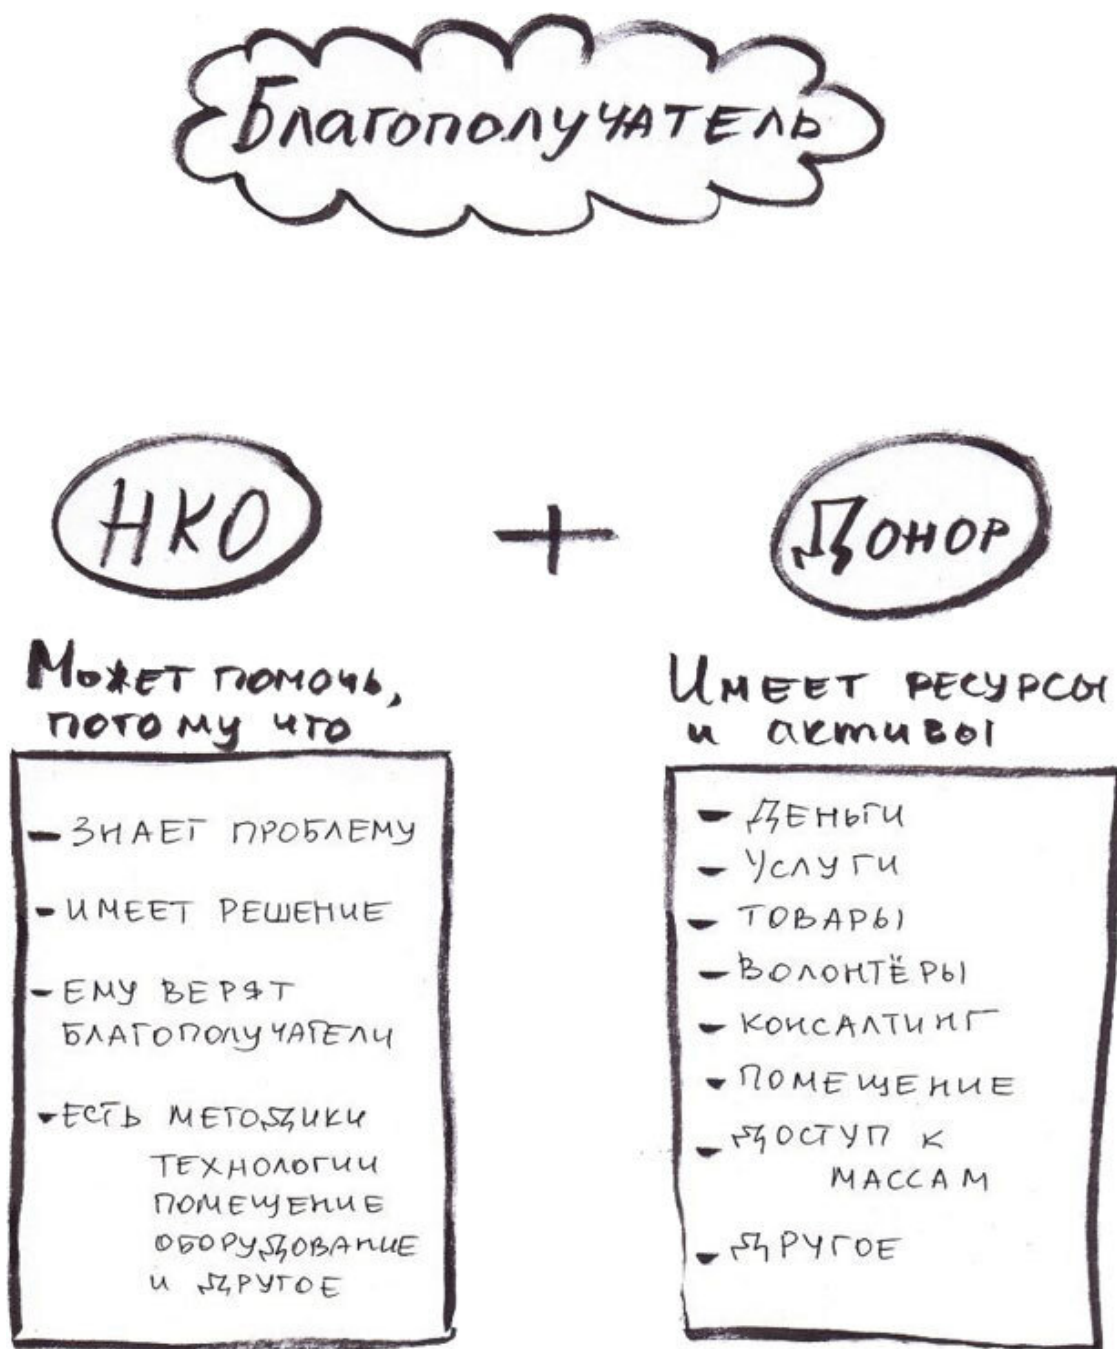 Благополучатель
НКО
+
Донор
Может помочь,
потому что
- знает проблему
- имеет решение
- ему верят
благополучатели
- есть методики
технологии
помещение
оборудование
и другое
Имеет ресурсы
и активы
- деньги
- услуги
- товары
- волонтёры
- консалтинг
- помещение
- доступ к
массам
- другое